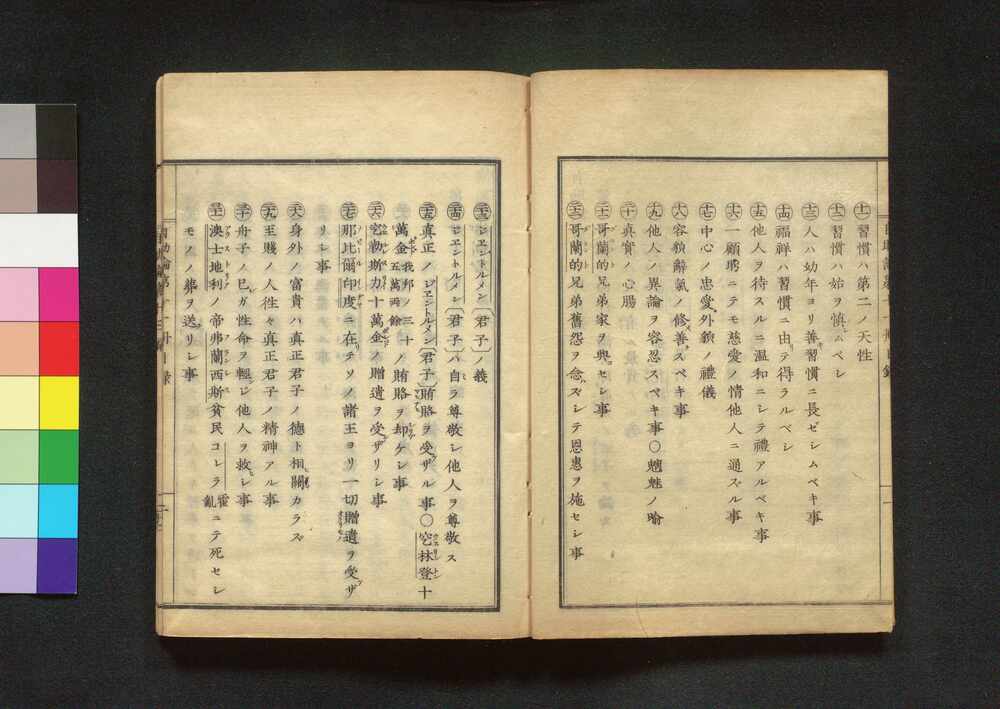 十一 習慣ハ第二ノ天性
十二 習慣ハ始ヲ慎ムベシ
十三 人ハ幼年ヨリ善習慣ニ長ゼシムベキ事
十四 福祥ハ習慣ニ由テ得ラルベシ
十五 他人ヲ待スルニ温和ニシテ禮アルベキ事
十六 一顧眄ニテモ慈愛ノ情他人ニ通ズル事
十七 中心ノ忠愛外貌ノ禮儀
十八 容貌辭氣ノ修善スベキ事
十九 他人ノ異論ヲ容忍スベキ事〇魑魅ノ喩
二十 真實ノ心腸
二十一 哥蘭的兄弟家ヲ興セシ事
二十二 哥蘭的兄弟舊怨ヲ念ズシテ恩惠ヲ施セシ事
二十三 ゼエントルメン〔君子〕ノ義
二十四 ゼエントルメン〔君子〕ハ自ラ尊敬シ他人ヲ尊敬ス
二十五 真正ノゼエントルメン〔君子〕賄賂ヲ受ザル事〇空林登十
萬金我邦ノ三十五萬両餘ノ賄賂ヲ却ケシ事
二十六 空勒斯力十萬金ノ贈遺ヲ受ザリシ事
二十七 那比爾印度ニ在テソノ諸王ヨリ一切贈遺ヲ受ザ
リシ事
二十八 身外ノ富貴ハ真正君子ノ德ト相關カラズ
二十九 至賤ノ人往々真正君子ノ精神アル事
三十 舟子ノ己ガ性命ヲ輕ジ他人ヲ救シ事
三十一 澳士地利ノ帝弗蘭西斯貧民コレラ霍亂ニテ死セシ
モノノ葬ヲ送リシ事